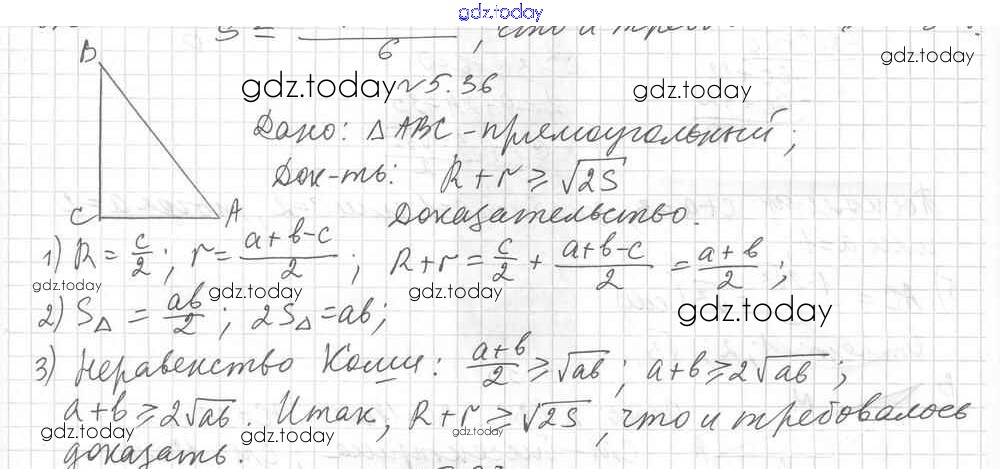 gdz.today
S = 6, что и треб
B
gdz.today №5.36 gdz.today gdz.today
Дано: △ABC - прямоугольный;
Док-ть: R + r ≥ √2S
C A Доказательство.
1) R = c/2; r = (a+b-c)/2; R + r = c/2 + (a+b-c)/2 = (a+b)/2;
gdz.today gdz.today gdz.today gdz.today
2) S△ = ab/2; 2S△ = ab;
3) Неравенство Коши: (a+b)/2 ≥ √ab; a+b ≥ 2√ab;
a+b ≥ 2√ab. Итак, R + r ≥ √2S, что и требовалось
gdz.today gdz.today gdz.today gdz.today
доказать.